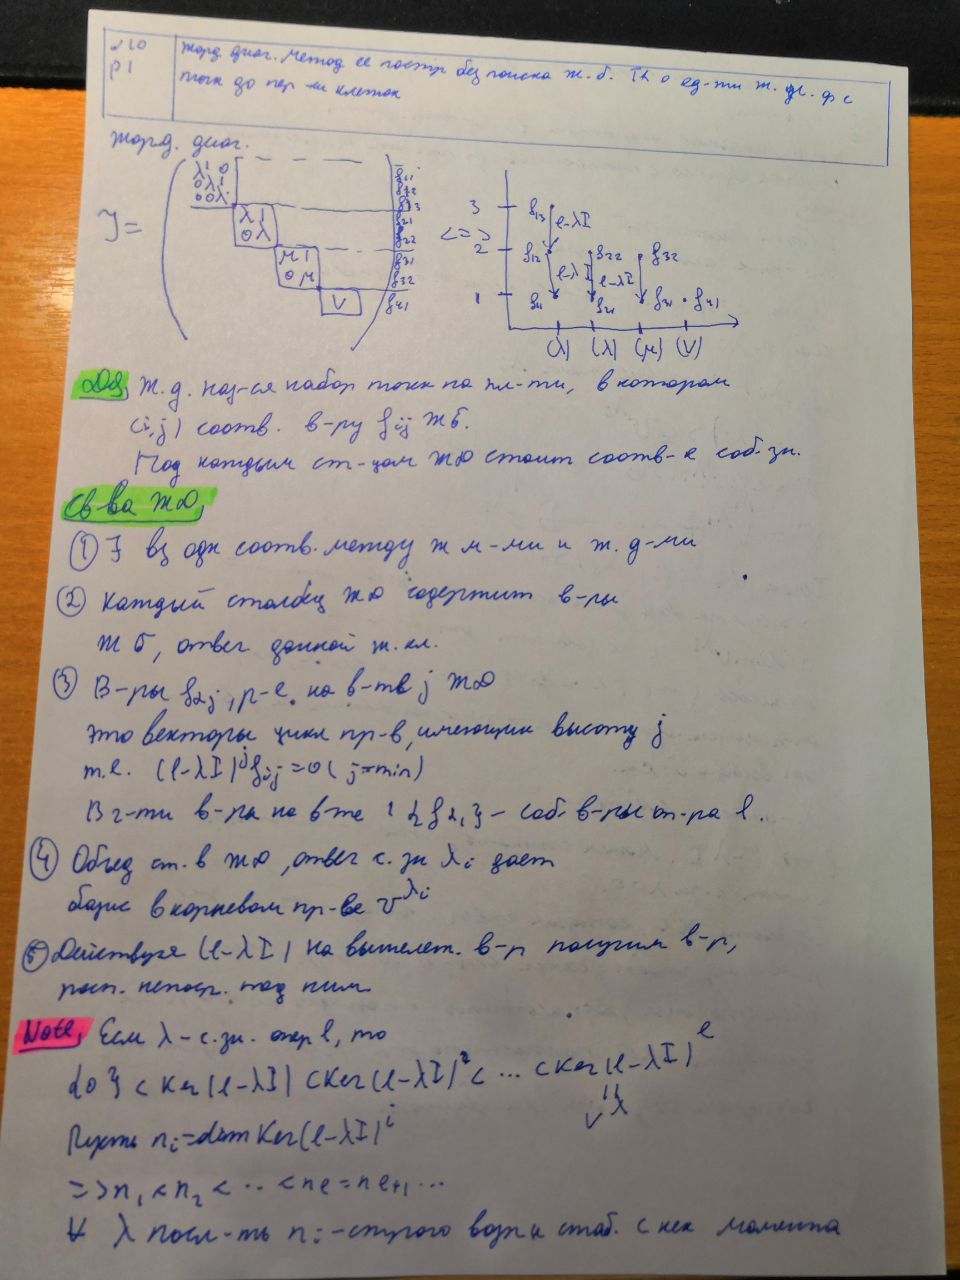 №10
р1
жорд. диаг. Метод ее постр без поиска ж.б. Th о ед-ти ж. ф с
точн до пер-ки клеток
жорд. диаг.
J=
λ 1 0
0 λ 1
0 0 λ
λ 1
0 λ
μ 1
0 μ
ν
f11
f12
f13
f21
f22
f31
f32
f41
<=>
3 f13
l-λI
2 f12 f22 f32
l-λI l-λI
1 f11 f21 f31 f41
(λ) (λ) (μ) (ν)
Def Ж.д. наз-ся набор точек на пл-ти, в котором
(i,j) соотв. в-ру fij ЖБ.
Под каждым ст-цом ЖD стоит соотв-е соб. зн.
Св-ва ЖD
① ∃ вз одн соотв. между ж м-ми и ж. д-ми
② Каждый столбец ЖD содержит в-ры
ЖБ, отвеч. данной ж.кл.
③ В-ры fαj, р-е на в-те j ЖD
это векторы цикл пр-в, имеющии высоту j
т.е. (l-λI)^j fij = 0 (j=min)
В ч-ти в-ры на в-те 1 {fα,1} - соб. в-ры оп-ра l.
④ Объед ст. в ЖD, отвеч с.зн λi дает
базис в корневом пр-ве V^λi
⑤ Действуя (l-λI) на вышележ. в-р получим в-р,
расп. непоср. под ним.
Note, Если λ - с.зн. опер l, то
{0} < Ker(l-λI) < Ker(l-λI)² < ... < Ker(l-λI)^l
V^λ
Пусть ni = dim Ker(l-λI)^i
=> n1 < n2 < .. < ne = ne+1 ...
∀ λ посл-ть ni - строго возр и стаб. с нек момента